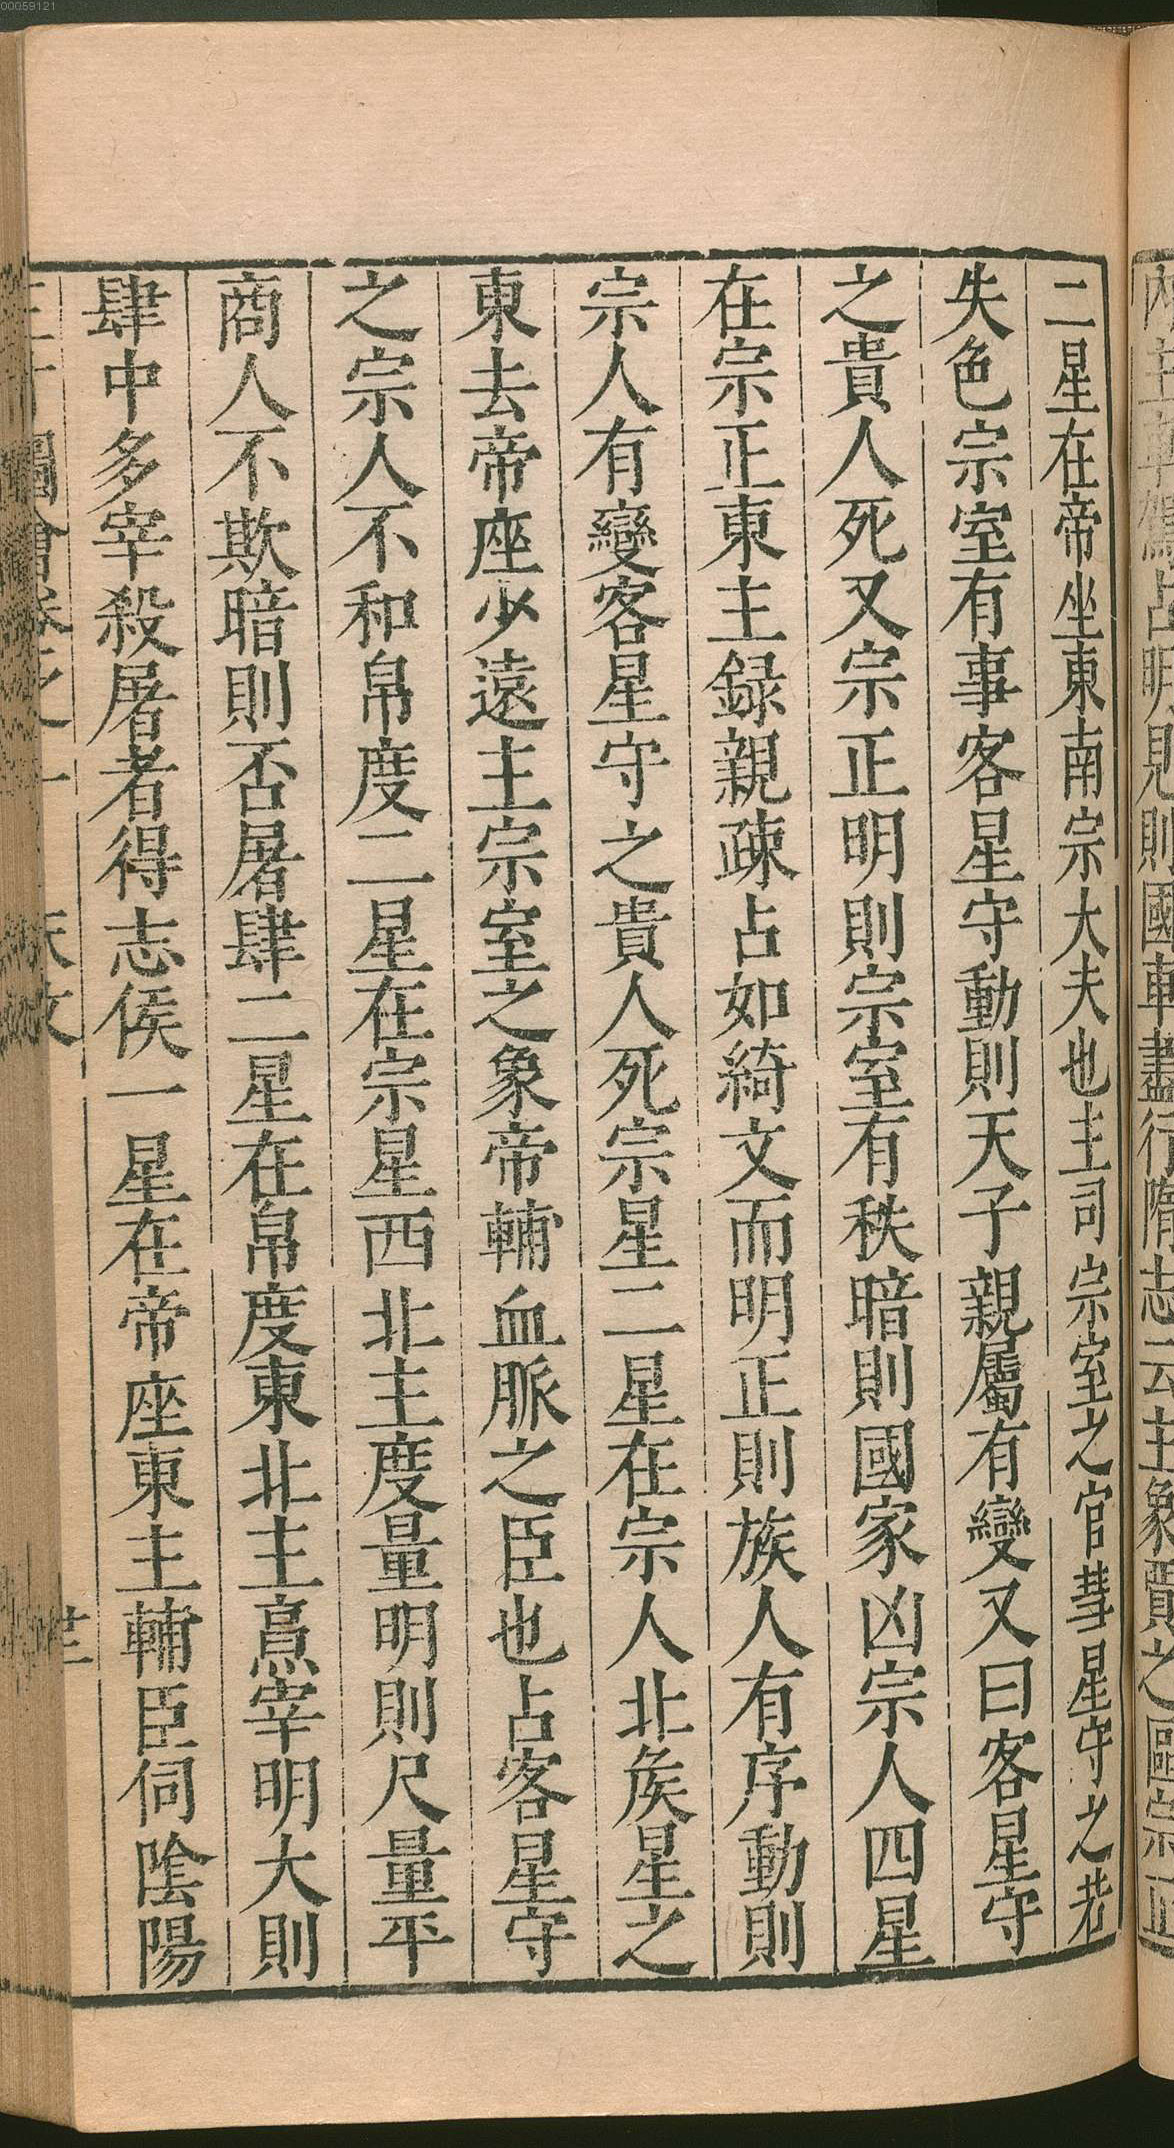 00059121
內主車駕占明見則國車盡行隋志云主象賈之區宗正
二星在帝坐東南宗大夫也主司宗室之官彗星守之若
失色宗室有事客星守動則天子親屬有變又曰客星守
之貴人死又宗正明則宗室有秩暗則國家凶宗人四星
在宗正東主録親疎占如綺文而明正則族人有序動則
宗人有變客星守之貴人死宗星二星在宗人北矦星之
東去帝座少遠主宗室之象帝輔血脈之臣也占客星守
之宗人不和帛度二星在宗星西北主度量明則尺量平
商人不欺暗則否屠肆二星在帛度東北主烹宰明大則
肆中多宰殺屠者得志侯一星在帝座東主輔臣伺陰陽
圖會卷之一 天文